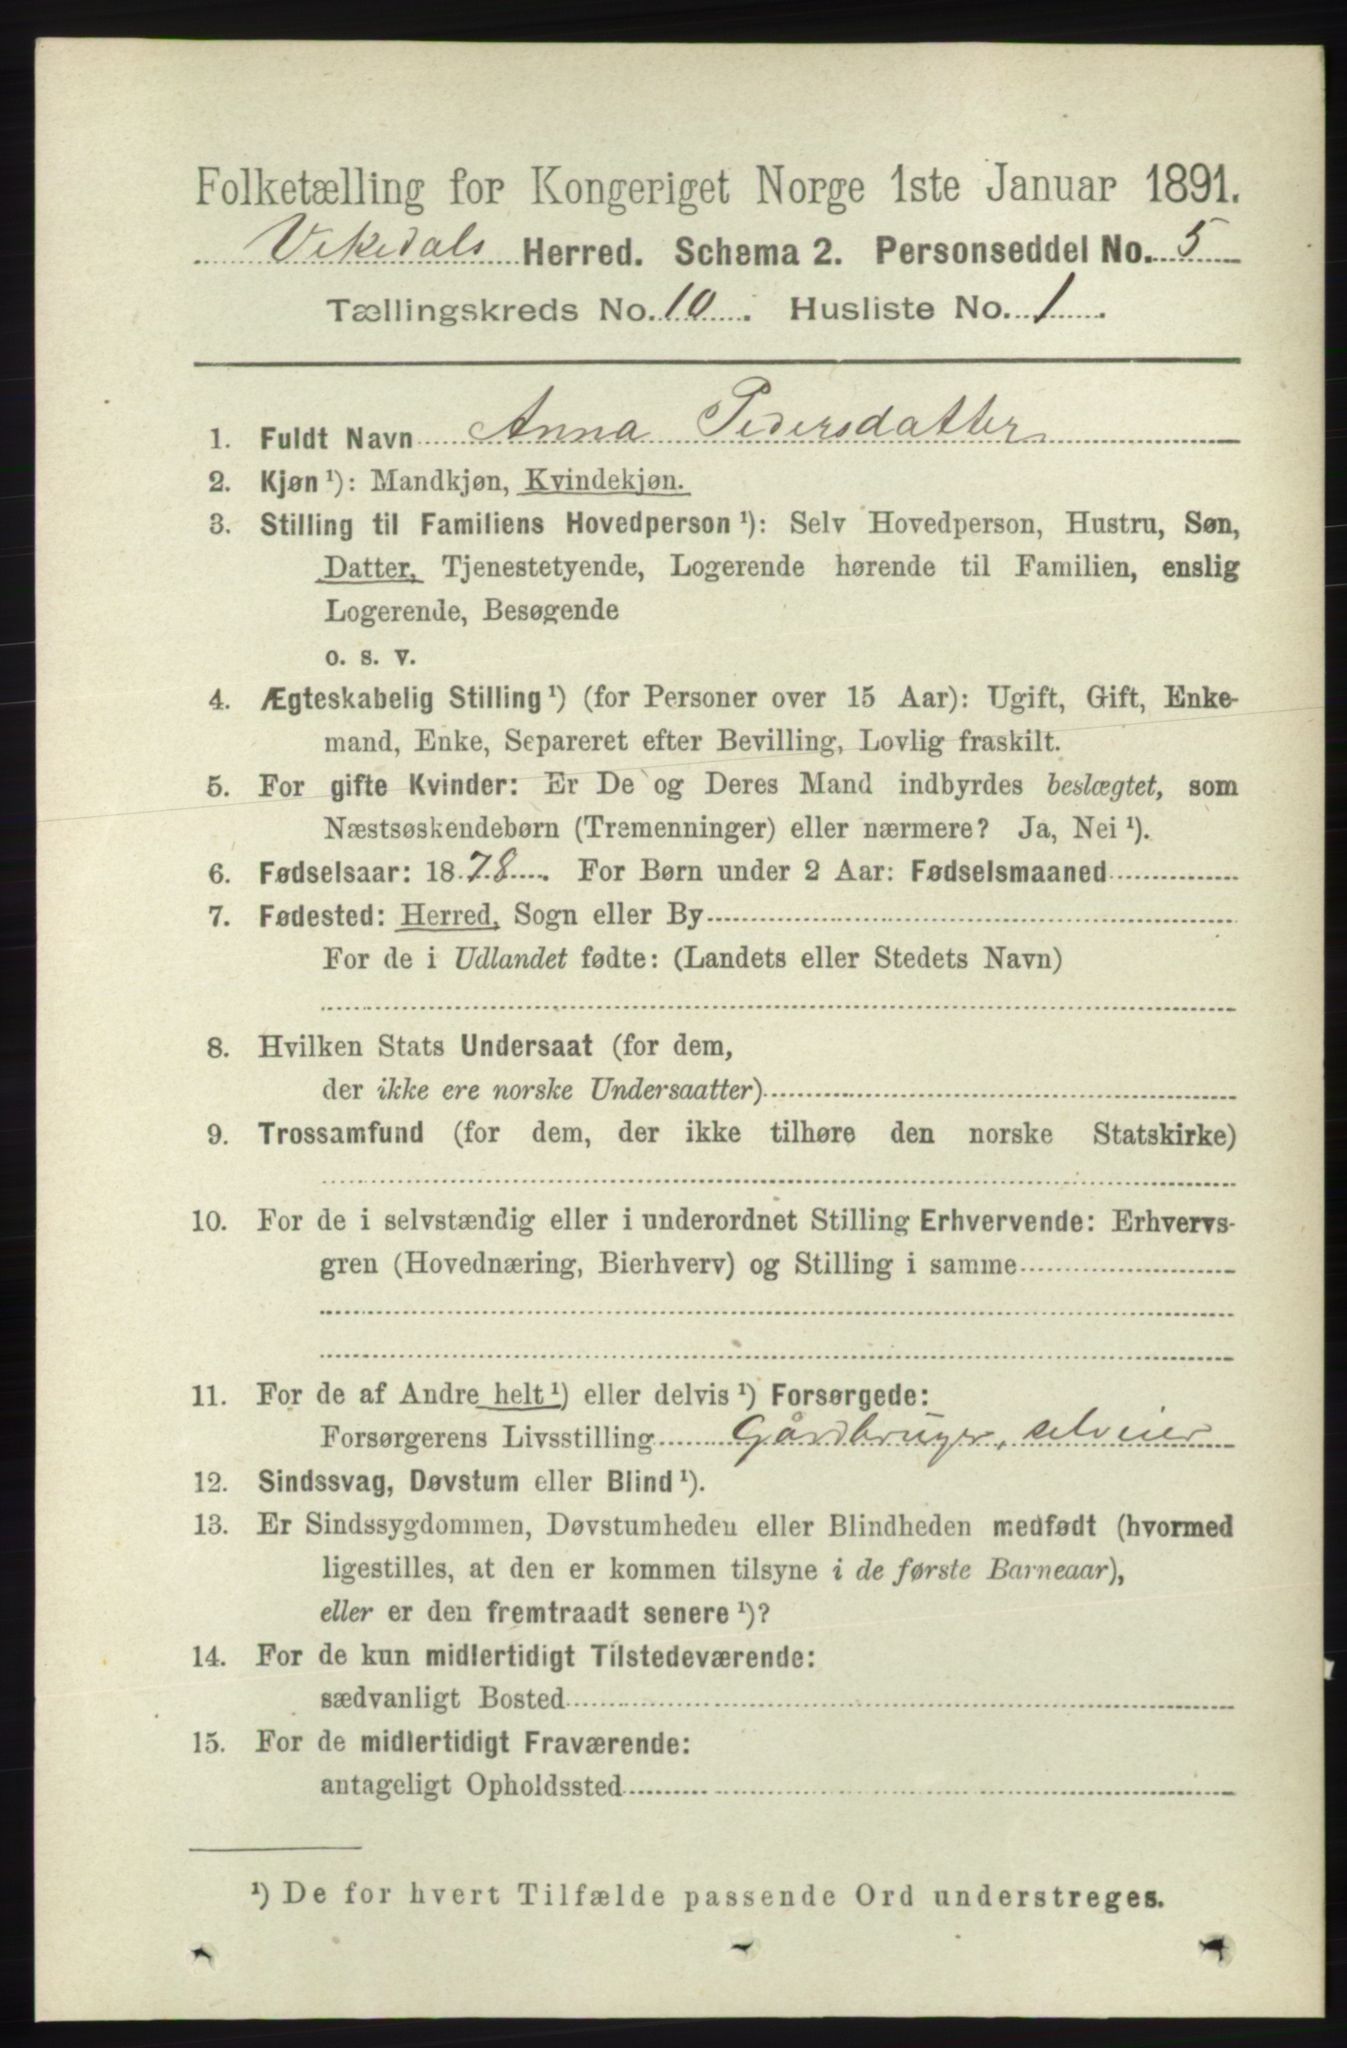 Folketælling for Kongeriget Norge 1ste Januar 1891.
Vikedals Herred. Schema 2. Personseddel No. 5
Tællingskreds No. 10. Husliste No. 1.
1. Fuldt Navn Anna Pedersdatter
2. Kjøn ¹): Mandkjøn, Kvindekjøn.
3. Stilling til Familiens Hovedperson ¹): Selv Hovedperson, Hustru, Søn,
Datter, Tjenestetyende, Logerende hørende til Familien, enslig
Logerende, Besøgende
o. s. v.
4. Ægteskabelig Stilling ¹) (for Personer over 15 Aar): Ugift, Gift, Enke-
mand, Enke, Separeret efter Bevilling, Lovlig fraskilt.
5. For gifte Kvinder: Er De og Deres Mand indbyrdes beslægtet, som
Næstsøskendebørn (Tremenninger) eller nærmere? Ja, Nei ¹).
6. Fødselsaar: 1878. For Børn under 2 Aar: Fødselsmaaned
7. Fødested: Herred, Sogn eller By
For de i Udlandet fødte: (Landets eller Stedets Navn)
8. Hvilken Stats Undersaat (for dem,
der ikke ere norske Undersaatter)
9. Trossamfund (for dem, der ikke tilhøre den norske Statskirke)
10. For de i selvstændig eller i underordnet Stilling Erhvervende: Erhvervs-
gren (Hovednæring, Bierhverv) og Stilling i samme
11. For de af Andre helt ¹) eller delvis ¹) Forsørgede:
Forsørgerens Livsstilling Gårdbruger, selveier
12. Sindssvag, Døvstum eller Blind ¹).
13. Er Sindssygdommen, Døvstumheden eller Blindheden medfødt (hvormed
ligestilles, at den er kommen tilsyne i de første Barneaar),
eller er den fremtraadt senere ¹)?
14. For de kun midlertidigt Tilstedeværende:
sædvanligt Bosted
15. For de midlertidigt Fraværende:
antageligt Opholdssted
¹) De for hvert Tilfælde passende Ord understreges.